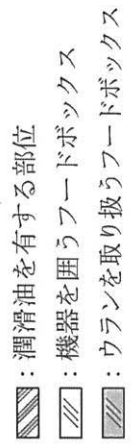 ：潤滑油を有する部位
：機器を囲うフードボックス
：ウランを取り扱うフードボックス